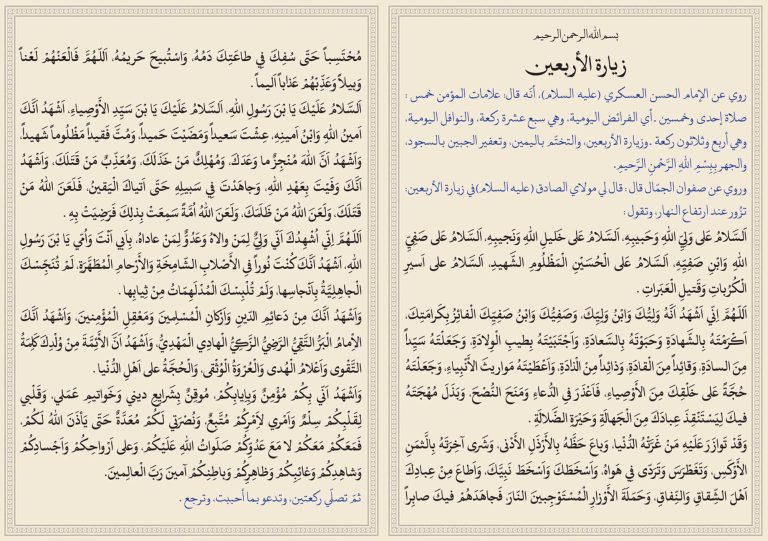 بسم الله الرحمن الرحيم
زيارة الأربعين
روي عن الإمام الحسن العسكري (عليه السلام)، أنّه قال: علامات المؤمن خمس :
صلاة إحدى وخمسين ـ أي الفرائض اليومية، وهي سبع عشرة ركعة، والنوافل اليومية،
وهي أربع وثلاثون ركعة ـ وزيارة الأربعين، والتختّم باليمين، وتعفير الجبين بالسجود،
والجهر بِبِسْمِ اللهِ الرَّحْمنِ الرَّحيمِ.
وروي عن صفوان الجمّال قال : قال لي مولاي الصادق (عليه السلام) في زيارة الأربعين:
تزُور عند ارتفاع النهار، وتقول :
اَلسَّلامُ عَلى وَلِيِّ اللهِ وَحَبيبِهِ، اَلسَّلامُ عَلى خَليلِ اللهِ وَنَجيبِهِ، اَلسَّلامُ عَلى صَفِيِّ
اللهِ وَابْنِ صَفِيِّهِ، اَلسَّلامُ عَلى الْحُسَيْنِ الْمَظْلُومِ الشَّهيدِ، اَلسَّلامُ على اَسيرِ
الْكُرُباتِ وَقَتيلِ الْعَبَراتِ .
اَللّهُمَّ اِنّي اَشْهَدُ اَنَّهُ وَلِيُّكَ وَابْنُ وَلِيِّكَ، وَصَفِيُّكَ وَابْنُ صَفِيِّكَ الْفائِزُ بِكَرامَتِكَ،
اَكْرَمْتَهُ بِالشَّهادَةِ وَحَبَوْتَهُ بِالسَّعادَةِ، وَاَجْتَبَيْتَهُ بِطيبِ الْوِلادَةِ، وَجَعَلْتَهُ سَيِّداً
مِنَ السادَةِ، وَقائِداً مِنَ الْقادَةِ، وَذائِداً مِنْ الْذادَةِ، وَاَعْطَيْتَهُ مَواريثَ الاَْنْبِياءِ، وَجَعَلْتَهُ
حُجَّةً عَلى خَلْقِكَ مِنَ الاَْوْصِياءِ، فَاَعْذَرَ فىِ الدُّعاءِ وَمَنَحَ النُّصْحَ، وَبَذَلَ مُهْجَتَهُ
فيكَ لِيَسْتَنْقِذَ عِبادَكَ مِنَ الْجَهالَةِ وَحَيْرَةِ الضَّلالَةِ .
وَقَدْ تَوازَرَ عَلَيْهِ مَنْ غَرَّتْهُ الدُّنْيا، وَباعَ حَظَّهُ بِالاَْرْذَلِ الاَْدْنى، وَشَرى آخِرَتَهُ بِالثَّمَنِ
الاَْوْكَسِ، وَتَغَطْرَسَ وَتَرَدّى فِي هَواهُ، وَاَسْخَطَكَ وَاَسْخَطَ نَبِيَّكَ، وَاَطاعَ مِنْ عِبادِكَ
اَهْلَ الشِّقاقِ وَالنِّفاقِ، وَحَمَلَةَ الاَْوْزارِ الْمُسْتَوْجِبينَ النّارَ، فَجاهَدَهُمْ فيكَ صابِراً
مُحْتَسِباً حَتّى سُفِكَ فِي طاعَتِكَ دَمُهُ، وَاسْتُبيحَ حَريمُهُ، اَللّهُمَّ فَالْعَنْهُمْ لَعْناً
وَبيلاً وَعَذِّبْهُمْ عَذاباً اَليماً .
اَلسَّلامُ عَلَيْكَ يَا بْنَ رَسُولِ اللهِ، اَلسَّلامُ عَلَيْكَ يَا بْنَ سَيِّدِ الاَْوْصِياءِ، اَشْهَدُ اَنَّكَ
اَمينُ اللهِ وَابْنُ اَمينِهِ، عِشْتَ سَعيداً وَمَضَيْتَ حَميداً، وَمُتَّ فَقيداً مَظْلُوماً شَهيداً،
وَاَشْهَدُ اَنَّ اللهَ مُنْجِزٌ ما وَعَدَكَ، وَمُهْلِكٌ مَنْ خَذَلَكَ، وَمُعَذِّبٌ مَنْ قَتَلَكَ، وَاَشْهَدُ
اَنَّكَ وَفَيْتَ بِعَهْدِ اللهِ، وَجاهَدْتَ فِي سَبيلِهِ حَتّى اَتياكَ الْيَقينُ، فَلَعَنَ اللهُ مَنْ
قَتَلَكَ، وَلَعَنَ اللهُ مَنْ ظَلَمَكَ، وَلَعَنَ اللهُ اُمَّةً سَمِعَتْ بِذلِكَ فَرَضِيَتْ بِهِ .
اَللّهُمَّ اِنّي اُشْهِدُكَ اَنّي وَلِيٌّ لِمَنْ والاهُ وَعَدُوٌّ لِمَنْ عاداهُ، بِاَبي اَنْتَ وَاُمّي يَا بْنَ رَسُولِ
اللهِ، اَشْهَدُ اَنَّكَ كُنْتَ نُوراً فىِ الاَْصْلابِ الشّامِخَةِ وَالاَْرْحامِ الْمُطَهَّرَةِ، لَمْ تُنَجِّسْكَ
الْجاهِلِيَّةُ بِاَنْجاسِها، وَلَمْ تُلْبِسْكَ الْمُدْلَهِمّاتُ مِنْ ثِيابِها .
وَاَشْهَدُ اَنَّكَ مِنْ دَعائِمِ الدّينِ وَاَرْكانِ الْمُسْلِمينَ وَمَعْقِلِ الْمُؤْمِنينَ، وَاَشْهَدُ اَنَّكَ
الاِْمامُ الْبَرُّ التَّقِيُّ الرَّضِيُّ الزَّكِيُّ الْهادِي الْمَهْدِيُّ، وَاَشْهَدُ اَنَّ الاَْئِمَّةَ مِنْ وُلْدِكَ كَلِمَةُ
التَّقْوى وَاَعْلامُ الْهُدى وَالْعُرْوَةُ الْوُثْقى، وَالْحُجَّةُ على اَهْلِ الدُّنْيا .
وَاَشْهَدُ اَنّي بِكُمْ مُؤْمِنٌ وَبِاِيابِكُمْ، مُوقِنٌ بِشَرايِعِ ديني وَخَواتيمِ عَمَلي، وَقَلْبي
لِقَلْبِكُمْ سِلْمٌ وَاَمْري لاَِمْرِكُمْ مُتَّبِعٌ، وَنُصْرَتي لَكُمْ مُعَدَّةٌ حَتّى يَأْذَنَ اللهُ لَكُمْ،
فَمَعَكُمْ مَعَكُمْ لا مَعَ عَدُوِّكُمْ صَلَواتُ اللهِ عَلَيْكُمْ، وَعلى اَرْواحِكُمْ وَاَجْسادِكُمْ
وَشاهِدِكُمْ وَغائِبِكُمْ وَظاهِرِكُمْ وَباطِنِكُمْ آمينَ رَبَّ الْعالِمينَ.
ثمّ تصلّي ركعتين، وتدعو بما أحببت، وترجع .